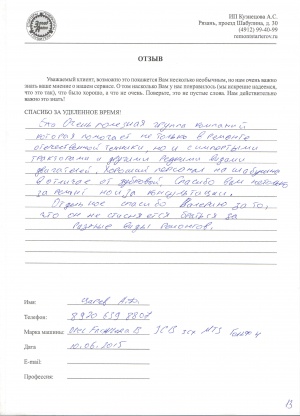 ИП Кузнецова А.С.
Рязань, проезд Шабулина, д. 30
(4912) 99-40-99
remontstarterov.ru
ОТЗЫВ
Уважаемый клиент, возможно это покажется Вам несколько необычным, но нам очень важно
знать ваше мнение о нашем сервисе. О том насколько Вам у нас понравилось (мы искренне надеемся,
что это так), что было хорошо, а что не очень. Поверьте, это не пустые слова. Нам действительно
важно это знать!
СПАСИБО ЗА УДЕЛЕННОЕ ВРЕМЯ!
Это Очень полезная группа компаний
которая помогает не только в ремонте
отечественной техники, но и с импортными
тракторами и другими редкими видами
двигателей. Хороший персонал на Шабулина
в отличае от Дубровой. Спасибо Вам
за ремонт но и за консультации.
Отдельное спасибо Валерию за то,
что он не стесняется браться за
редкие виды ремонтов.
Имя:
Телефон: 8 920 639 8807
Марка машины: JCB
Дата 10.06.2015
E-mail:
Профессия: